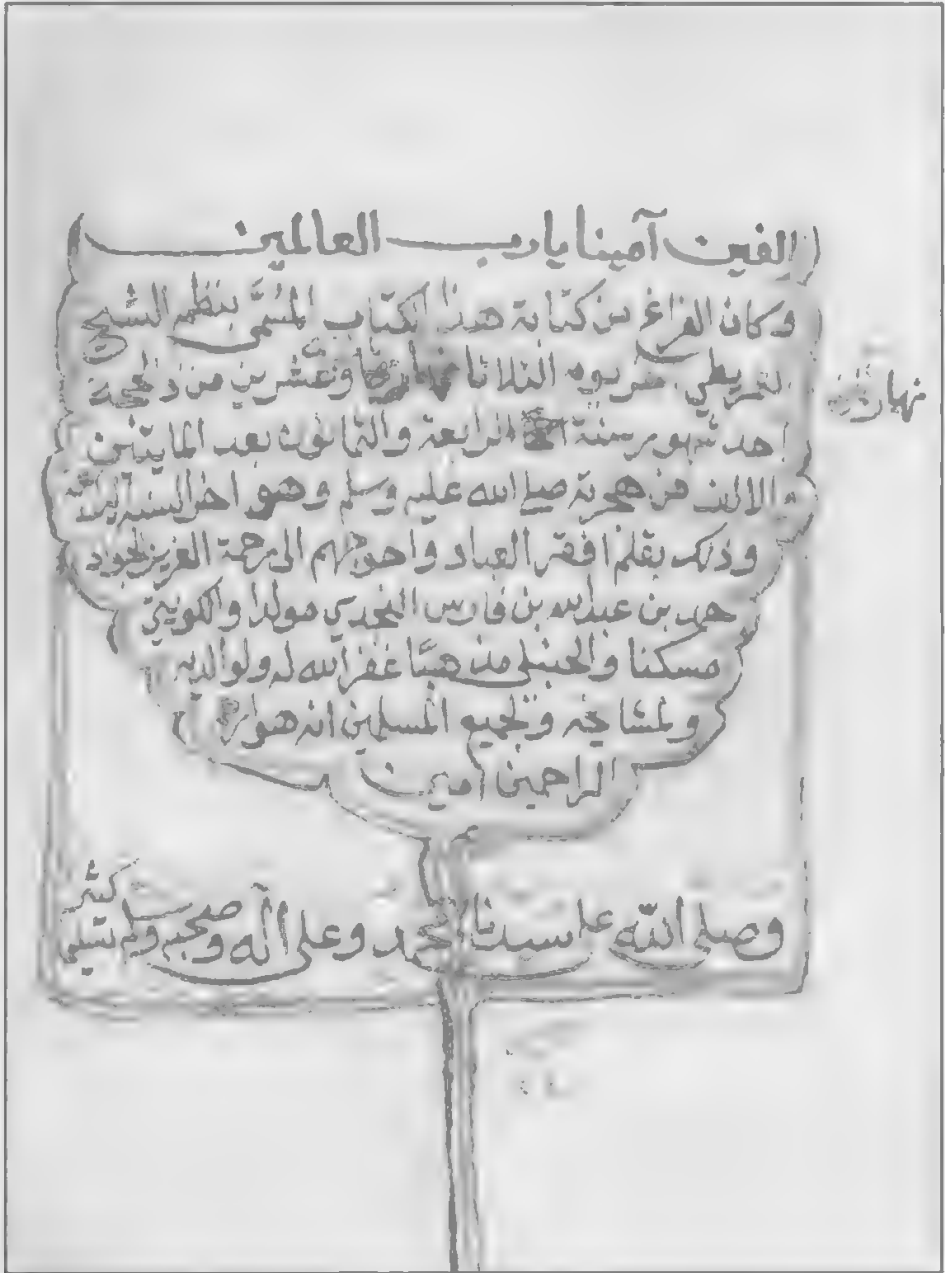 الفين آمينا يا رب العالمين
وكان الفراغ من كتابة هذا الكتاب المسمى بنظم الشيخ
العمريطي يوم الثلاثا وعشرين من ذالحجة
احد شهور سنة الرابعة والثمانون بعد المايتين
والالف من هجرته صلى الله عليه وسلم وهو اخر السنة
وذلك بقلم افقر العباد واحوجهم الى رحمة العزيز الجواد
حمد بن عبدالله بن فارس النجدي مولدا والكويتي
مسكنا والحنبلي مذهبًا غفر الله له ولوالديه
ولمشايخه ولجميع المسلمين انه هو ارحم
الراحمين آمين
وصلى الله على سيدنا محمد وعلى آله وصحبه وسلم تسليما كثير
نهار